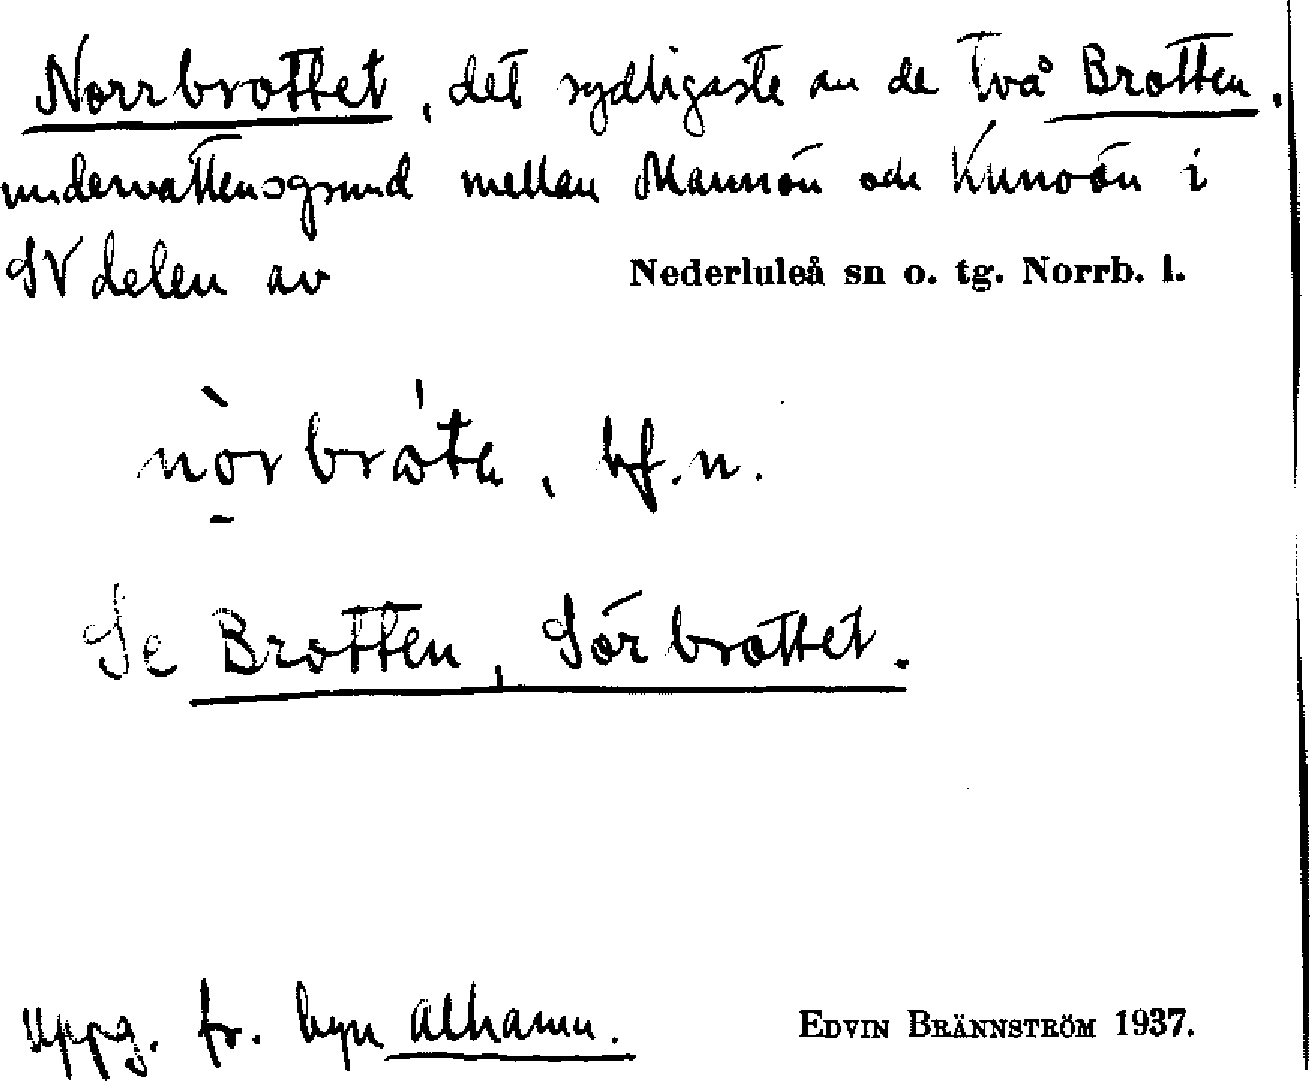 Norrbrottet, det sydligaste av de två Brotten,
undervattensgrund mellan Mannön och Kunoön i
SV delen av Nederluleå sn o. tg. Norrb. l.
bf. n.
Se Brotten, Sörbrottet.
Uppg. fr. byn Alhamn.
EDVIN BRÄNNSTRÖM 1937.